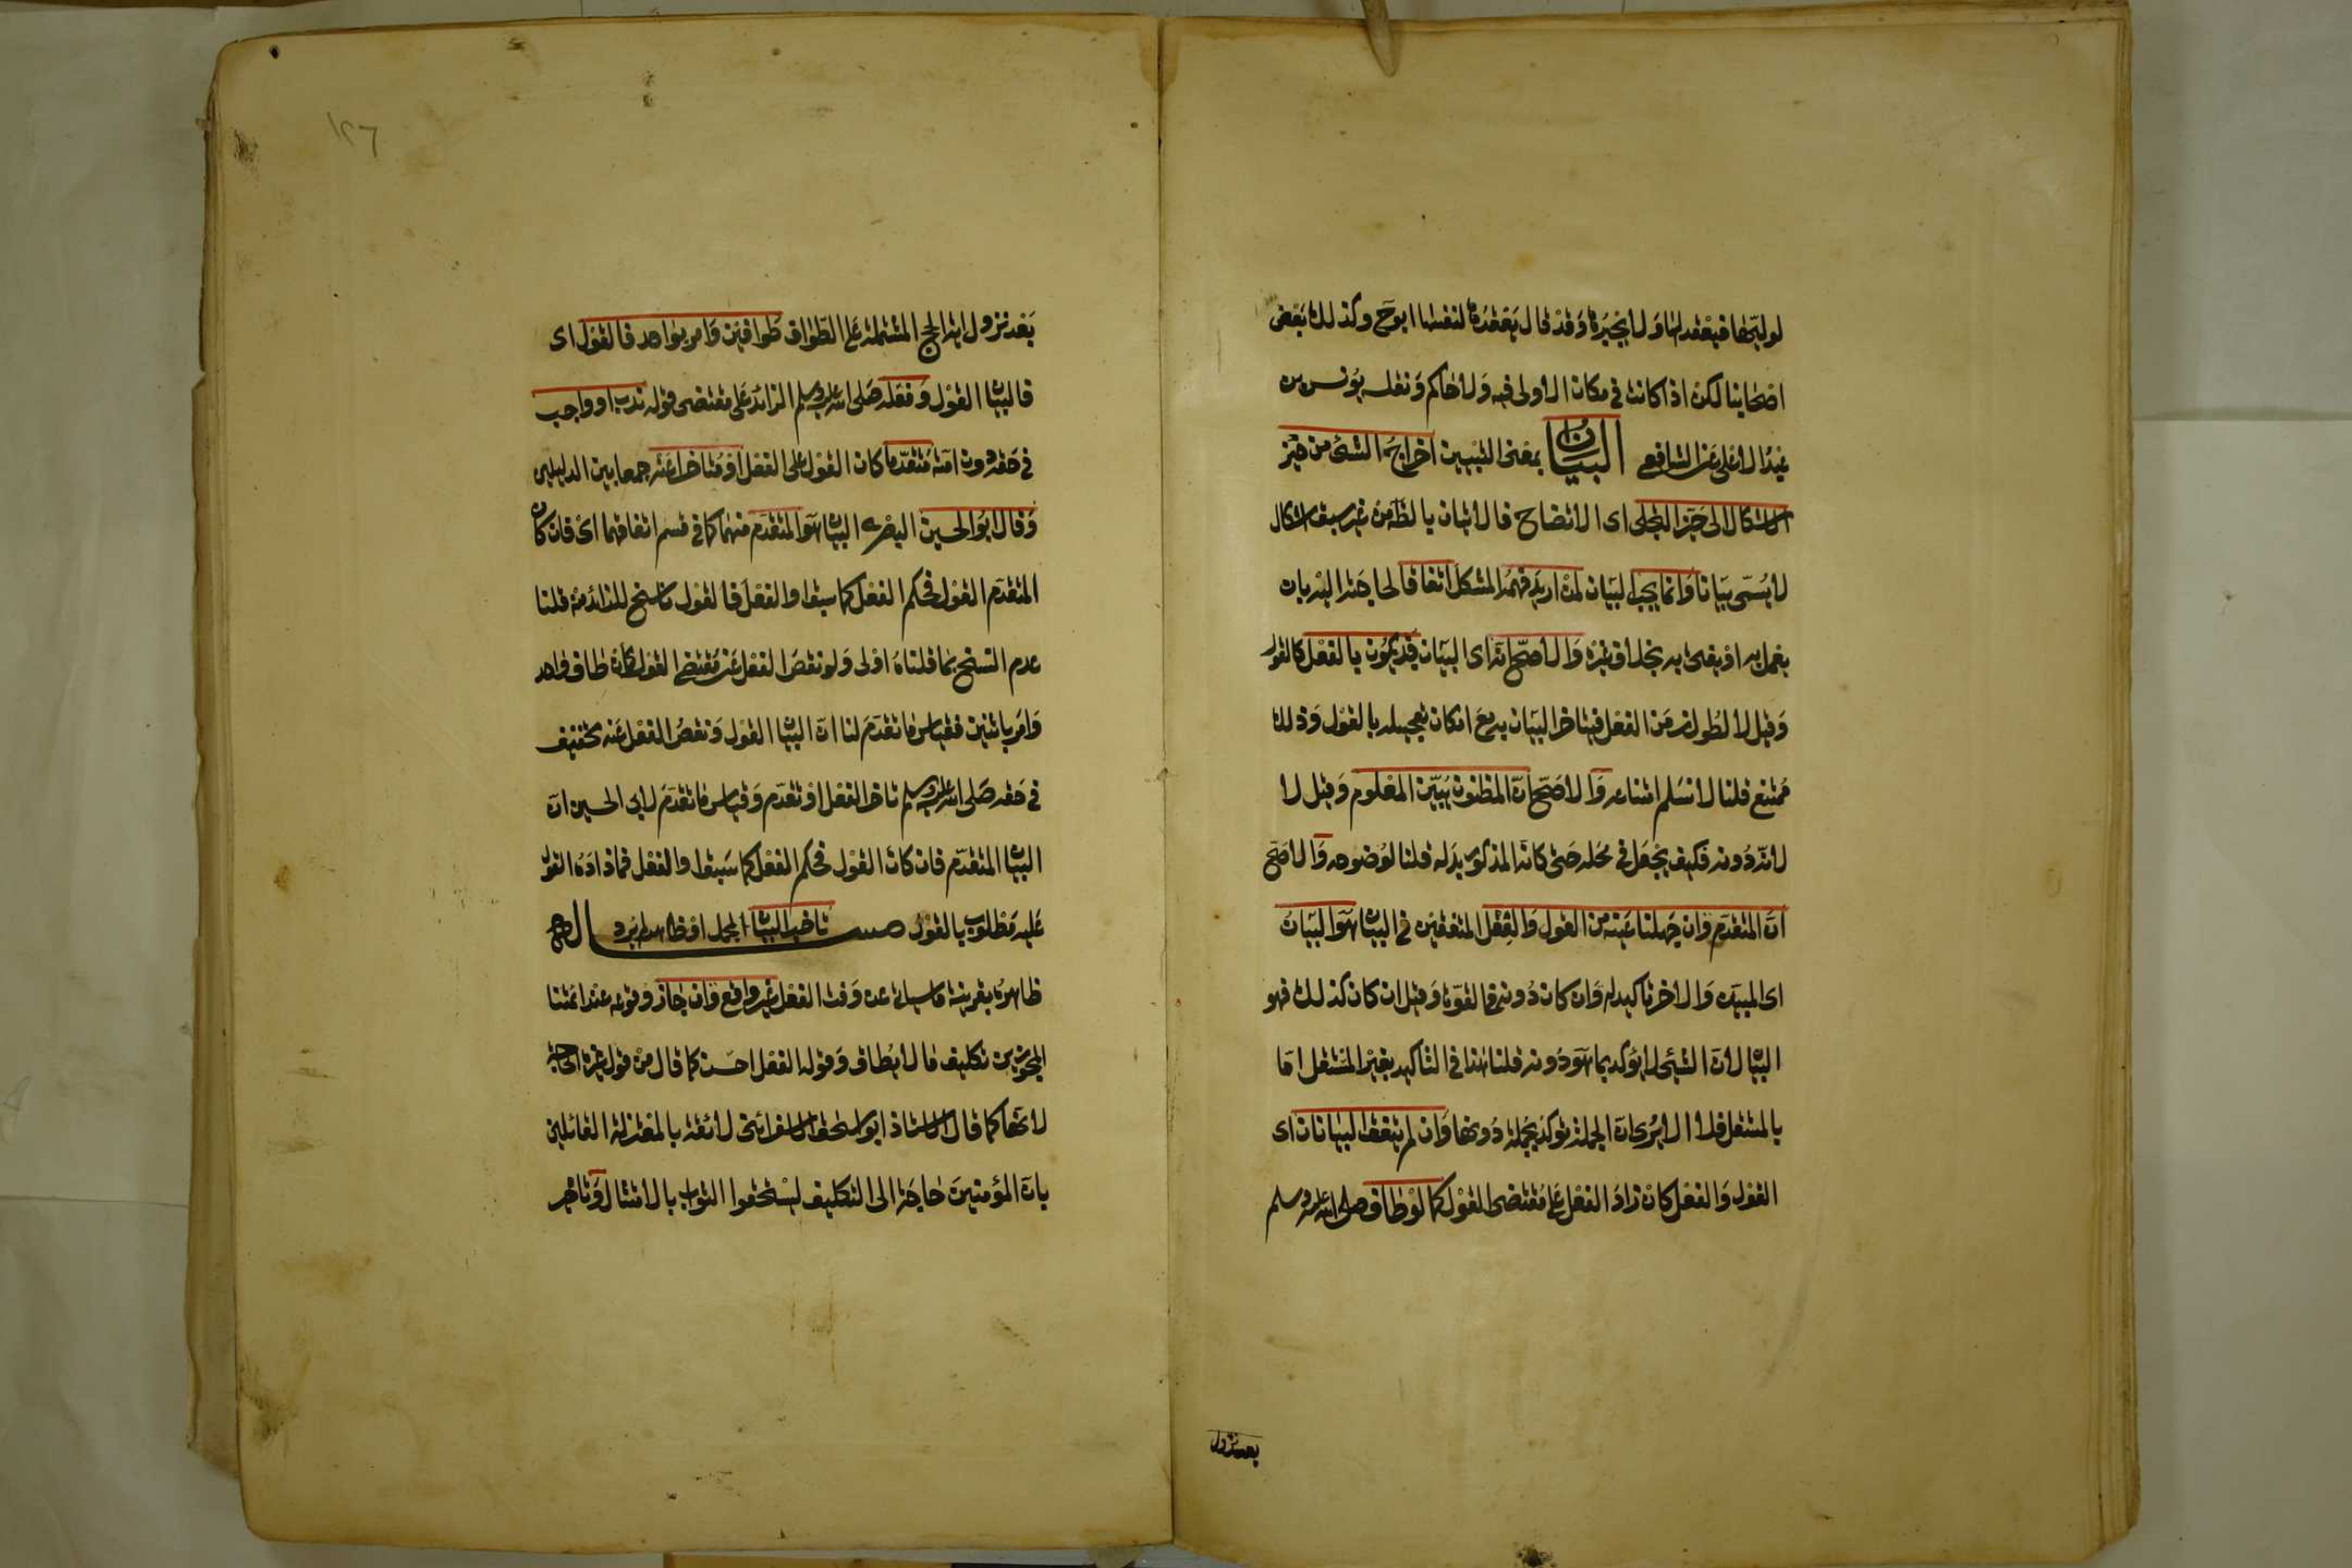 لوليها فيعقد لها ولا يجبرها وقد قال يعقدها لنفسها ابو ح وكذلك بعض
اصحابنا لكن اذا كانت في مكان لا ولى فيه ولا حاكم ونقله يونس بن
عبد الاعلى عن الشافعي البيان بمعنى التبيين اخراج الشئ من حيز
الاشكال الى حيز التجلى اى الاتضاح فالاتيان بالظاهر من غير سبق اشكال
لا يسمى بيانا وانما يجب البيان لمن اريد فهمه المشكل اتفاقا لحاجته اليه بان
يعمل به او يفتى به بخلاف غيره والاصح انه اى البيان قد يكون بالفعل كالقول
وقيل لا لطول زمن الفعل فيتاخر البيان به مع امكان تعجيله بالقول وذلك
ممتنع قلنا لا نسلم امتناعه والاصح ان المظنون يبين المعلوم وقيل لا
لانه دونه فكيف يجعل في محله حتى كانه المذكور بدله قلنا لوضوحه والاصح
ان المتقدم وان جهلنا عينه من القول والفعل المتفقين في البيان هو البيان
اى المبين والاخر تاكيد له وان كان دونه في القوة وقيل ان كان كذلك فهو
البيان لان الشئ لا يؤكد بما هو دونه قلنا هذا في التاكيد بغير المستقل اما
بالمستقل فلا الا يرى ان الجملة تؤكد بجملة دونها وان لم يتفق البيانان اى
القول والفعل كان زاد الفعل على مقتضى القول كما لو طاف صلى الله عليه وسلم
بعد نزول
١٢٦
بعد نزول اية الحج المشتملة على الطواف طوافين وامر بواحد فالقول اى
فالبيان القول وفعله صلى الله عليه وسلم الزائد على مقتضى قوله ندب او واجب
في حقه دون امته متقدما كان القول على الفعل او متاخرا عنه جمعا بين الدليلين
وقال ابو الحسين البصرى البيان هو المتقدم منهما كما في قسم اتفاقهما اى فان كان
المتقدم القول فحكم الفعل كما سبق او الفعل فالقول ناسخ للزائد منه قلنا
عدم النسخ بما قلناه اولى ولو نقص الفعل عن مقتضى القول كان طاف واحد
وامر باثنين فقياس ما تقدم لنا ان البيان القول ونقص الفعل عنه تخفيف
في حقه صلى الله عليه وسلم تاخر الفعل او تقدم وقياس ما تقدم لابى الحسين ان
البيان المتقدم فان كان القول فحكم الفعل كما سبق او الفعل فما زاده القول
عليه مطلوب بالقول مسئلة تاخير البيان لمجمل او ظاهر لم يرد
ظاهره بقرينة ما سياتى عن وقت الفعل غير واقع وان جاز وقوعه عند ائمتنا
المجوزين تكليف ما لا يطاق وقوله الفعل احسن كما قال من قول غيره الحاجة
لانها كما قال الاستاذ ابو اسحق الاسفرائنى لائقة بالمعتزلة القائلين
بان المؤمنين حاجة الى التكليف ليستحقوا الثواب بالامتثال وتاخير